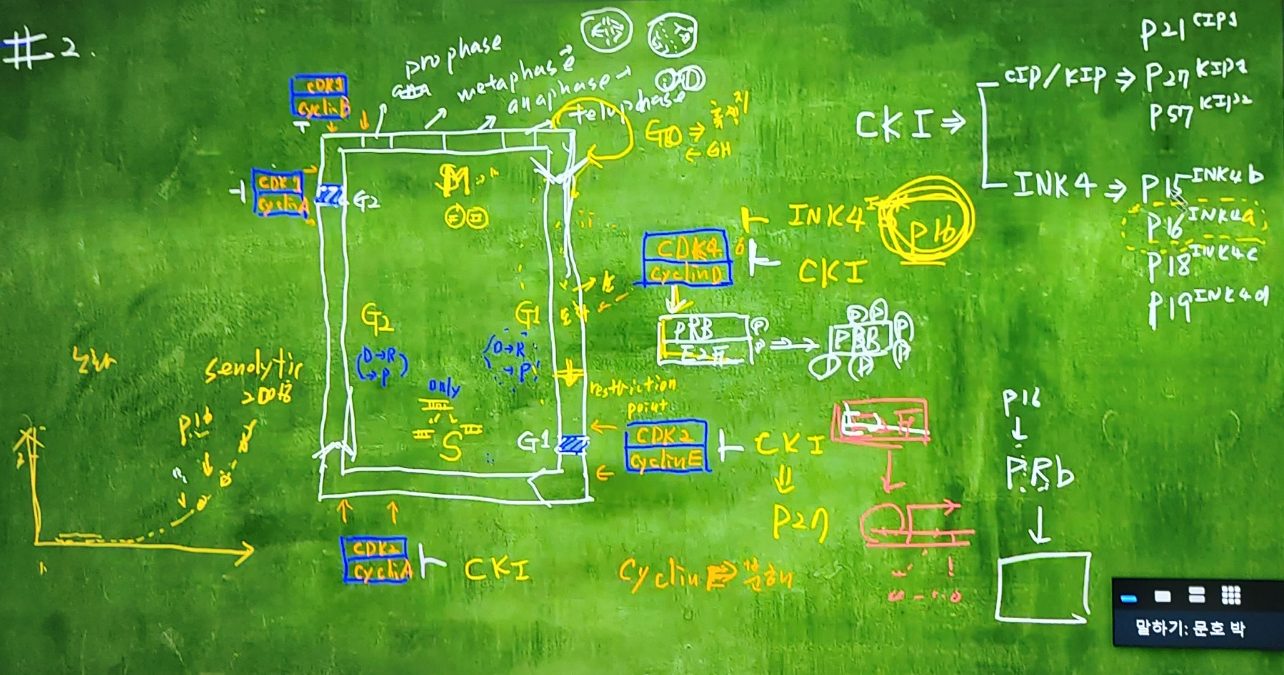 #2.
prophase
metaphase
anaphase
telophase
CDK1
cyclinB
CDK1
cyclinA
G2
M
G0
GH
G2
(D→R
→P)
only
S
G1
(D→R
→P)
restriction
point
G1
CDK4
cyclinD
INK4
P16
CKI
PRB
E2F
P
P
PRB
P
P
P
P
P
P
CDK2
cyclinE
CKI
P27
CDK2
cyclinA
CKI
Cyclin ⇒ 분해
E2F
노화
senolytic
P16
CKI ⇒
CIP/KIP ⇒
P21 CIP1
P27 KIP1
P57 KIP2
INK4 ⇒
P15 INK4b
P16 INK4a
P18 INK4c
P19 INK4d
P16
↓
PRb
↓
말하기: 문호 박